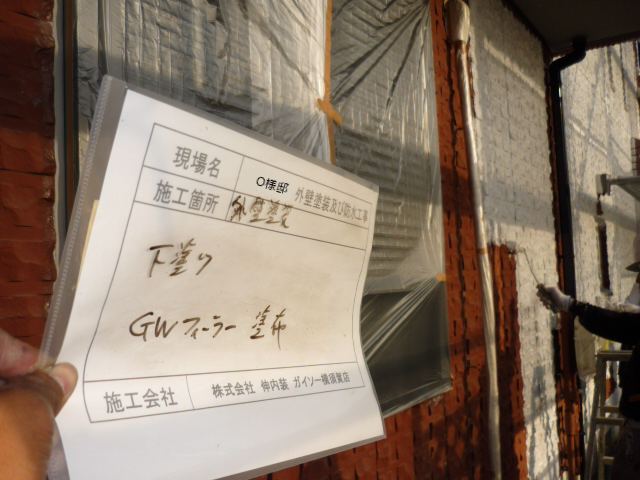 現場名 O様邸 外壁塗装及び防水工事
施工箇所 外壁塗装
下塗り
GWフィーラー 塗布
施工会社 株式会社 伸内装 ガイソー横須賀店